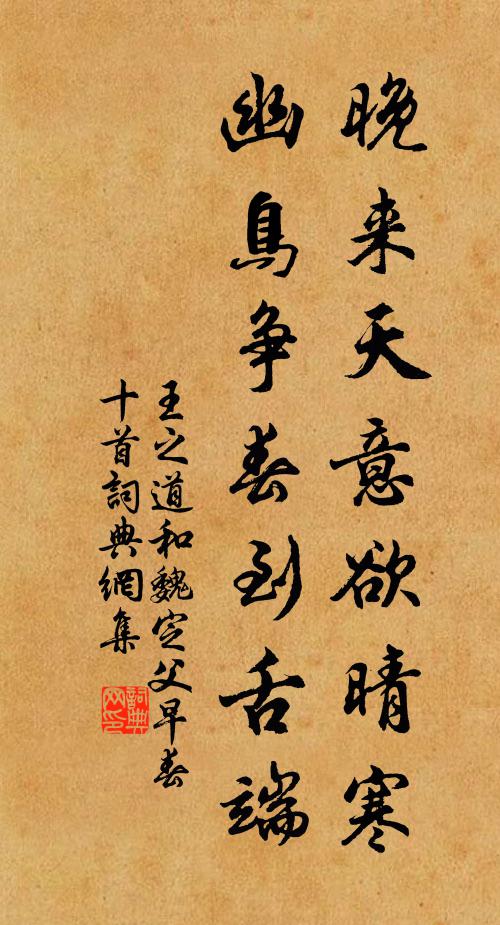 晚来天意欲晴寒
幽鳥争春到舌端
王之道和魏定父早春
十首詞典網集
詞典
网印